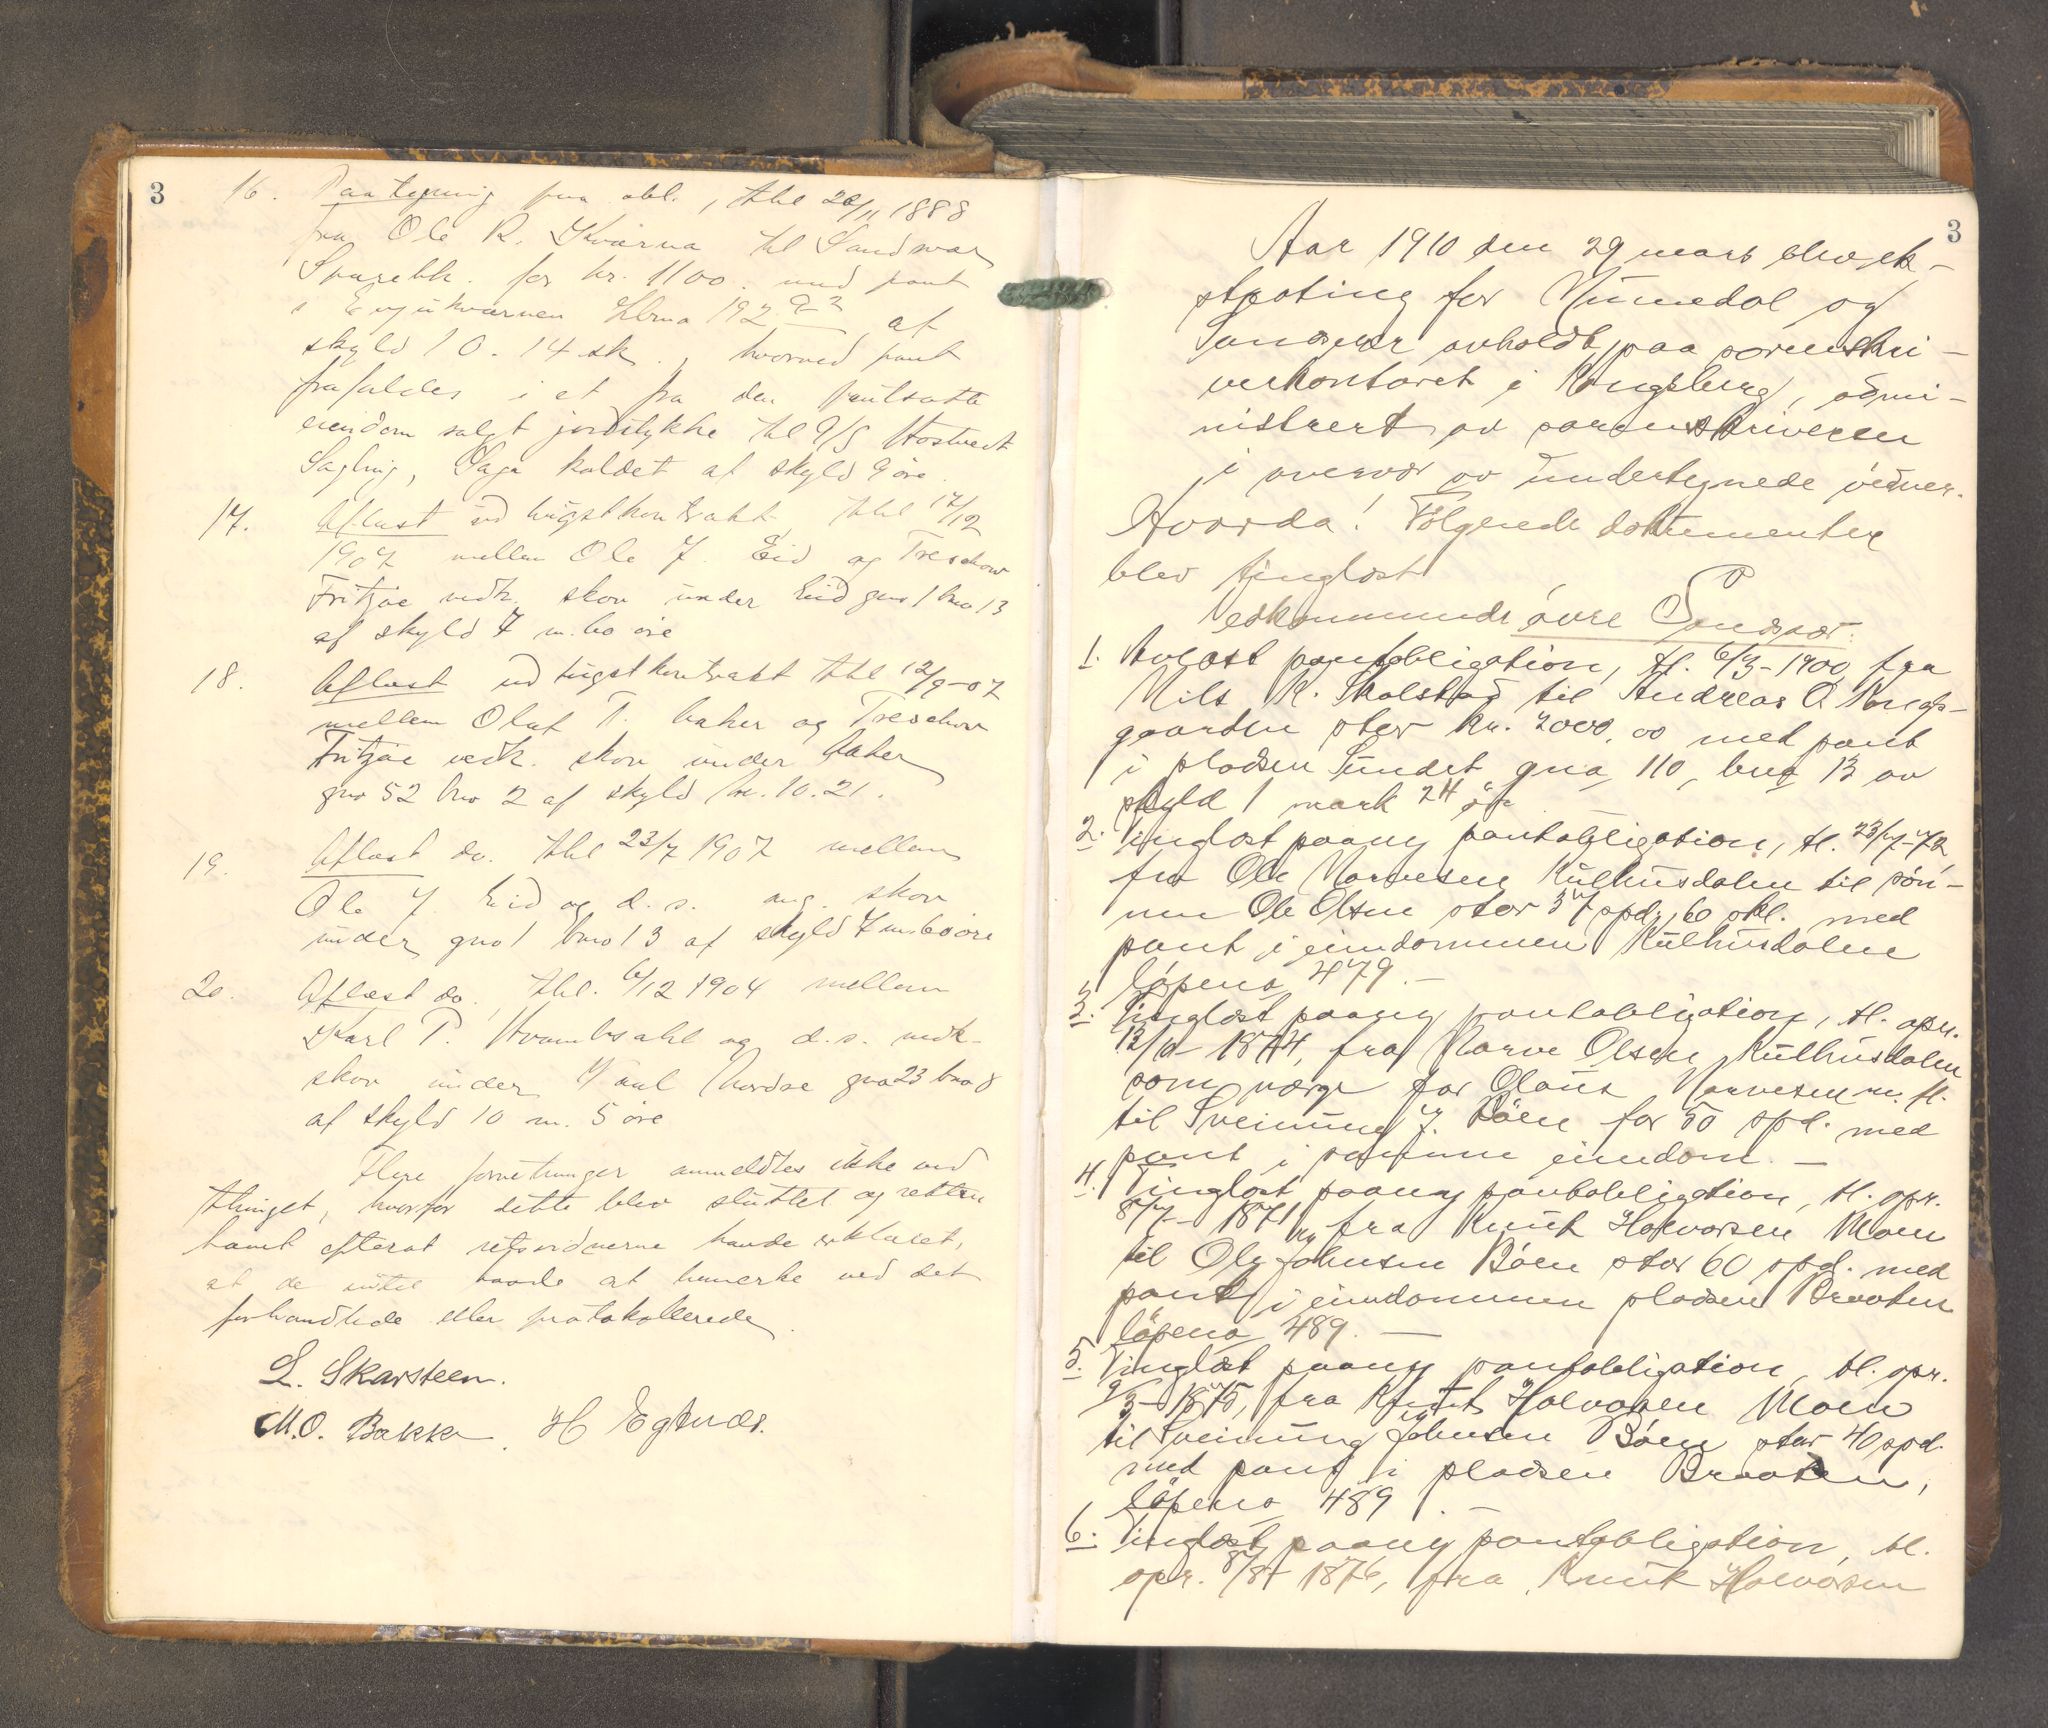 3
16. Paategning paa obl., thl 20/11 1888
fra Ole K. Kværna til Sandsvær
Sparebk. for kr. 1100. med pant
i
skyld 1 0. 14 sk., hvorved pant
frafaldes i et fra den pantsatte
eiendom solgt jordstykke til A/S Hostvedt
Sagbrug, Saga kaldet af skyld 9 øre.
17. Aflæst ud hugstkontrakt, thl 17/12
1907 mellem Ole J. Eid og Treschow
Fritzøe vedk. skov under Eid gno 1 bno 13
af skyld 7 m. 60 øre
18. Aflæst ud hugstkontrakt thl 12/9-07
mellem Oluf T. Aaker og Treschow
Fritzøe vedk. skov under Aaker
gno 52 bno 2 af skyld kr. 10.21.
19. Aflæst do. thl 23/7 1907 mellem
Ole J. Eid og d. s. ang. skov
under gno 1 bno 13 af skyld 7 m. 60 øre
20. Aflæst do, thl. 6/12 1904 mellem
Karl P. og d. s. vedk.
skov under gno 23 bno 8
af skyld 10 m. 5 øre
Flere forretninger anmeldtes ikke ved
thinget, hvorfor dette blev sluttet og retten
hævet efterat retsvidnerne havde erklæret,
at de intet havde at bemerke ved det
forhandlede eller protokollerede.
L. Skarsteen.
M.O. Bakke. H Egtveds.
3
Aar 1910 den 29 mars blev ek-
strating for Numedal og
Sandsvær avholdt paa sorenskri-
verkontoret i Kongsberg, admi-
nistrert av sorenskriveren
i overvær av undertegnede vidner.
Hvorda! Følgende dokumenter
blev tinglæst
Vedkommende övre Sandsvær.
1. Avlæst pantobligation, tl. 6/3-1900, fra
Nils K. Skalstad til Andreas O Kongs-
gaarden stor kr. 2000,00 med pant
i pladsen Sundet gno 110, bno 13 av
skyld 1 mark 24 ör.
2. Tinglæst paany pantobligation, tl. 23/7-72,
fra Ole Narvesen Kulhusdalen til sön-
nen Ole Olsen stor 37 spd. 60 skl. med
pant i eiendommen Kulhusdalen
löpeno 479. -
3. Tinglæst paany pantobligation, tl. opr.
12/6- 1874, fra Narve Olsen Kulhusdalen
som værge for Olaus Narvesen m. fl.
til Sveinung J. Böen for 50 spd. med
pant i samme eiendom. -
4. Tinglæst paany pantobligation, tl. opr.
8/7- 1871, fra Knut Halvorsen Moen
til Ole Johnsen Böen stor 60 spd. med
pant i eiendommen pladsen Braaten
löpeno 489. -
5. Tinglæst paany pantobligation, tl. opr.
9/3- 1875, fra Knut Halvorsen Moen
til Sveinung Johnsen Böen stor 40 spd.
med pant i pladsen Braaten,
löpeno 489. -
6. Tinglæst paany pantobligation, tl.
opr. 8/8- 1876, fra Knut Halvorsen